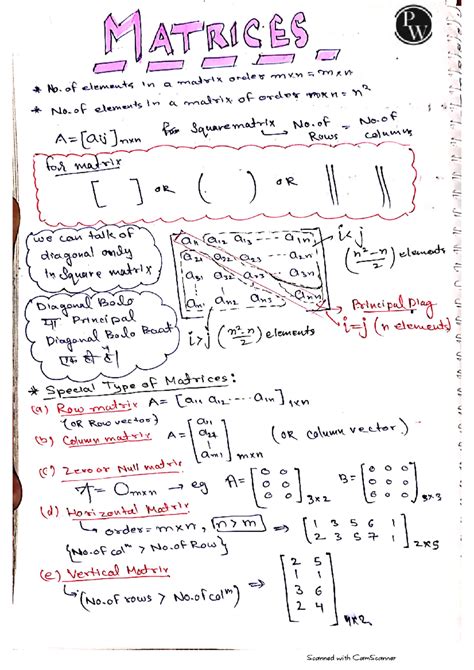 MATRICES
PW
* No. of elements in a matrix order m×n = m×n
* No. of elements in a matrix of order n×n = n²
A = [aij]n×n Square matrix → No. of Rows = No. of columns
for matrix
[ ] OR ( ) OR || ||
we can talk of
diagonal only
in square matrix
a11 a12 a13 ---- a1n
a21 a22 a23 ---- a2n
a31 a32 a33 ---- a3n
an1 an2 an3 ---- ann
i<j
(n²-n/2) elements
Principal Diag
i=j (n elements)
i>j (n²-n/2) elements
Diagonal Bolo
या Principal
Diagonal Bolo Baat
एक ही है
* Special Type of Matrices:
(a) Row matrix A = [a11 a12 ---- a1n]1×n
(OR Row vector)
(b) Column matrix A = [a11 a21 ⋮ am1]m×n (OR Column vector)
(c) Zero or Null matrix
A = Om×n → eg A = [0 0 0 0 0 0]3×2 B = [0 0 0 0 0 0 0 0 0]3×3
(d) Horizontal Matrix
→ order = m×n, n>m ⇒ [1 3 5 6 1
2 3 5 7 1]2×5
{No. of colm > No. of Row}
(e) Vertical Matrix
→ (No. of rows > No. of colm) ⇒ [2 5
1 1
3 6
2 4]4×2
Scanned with CamScanner